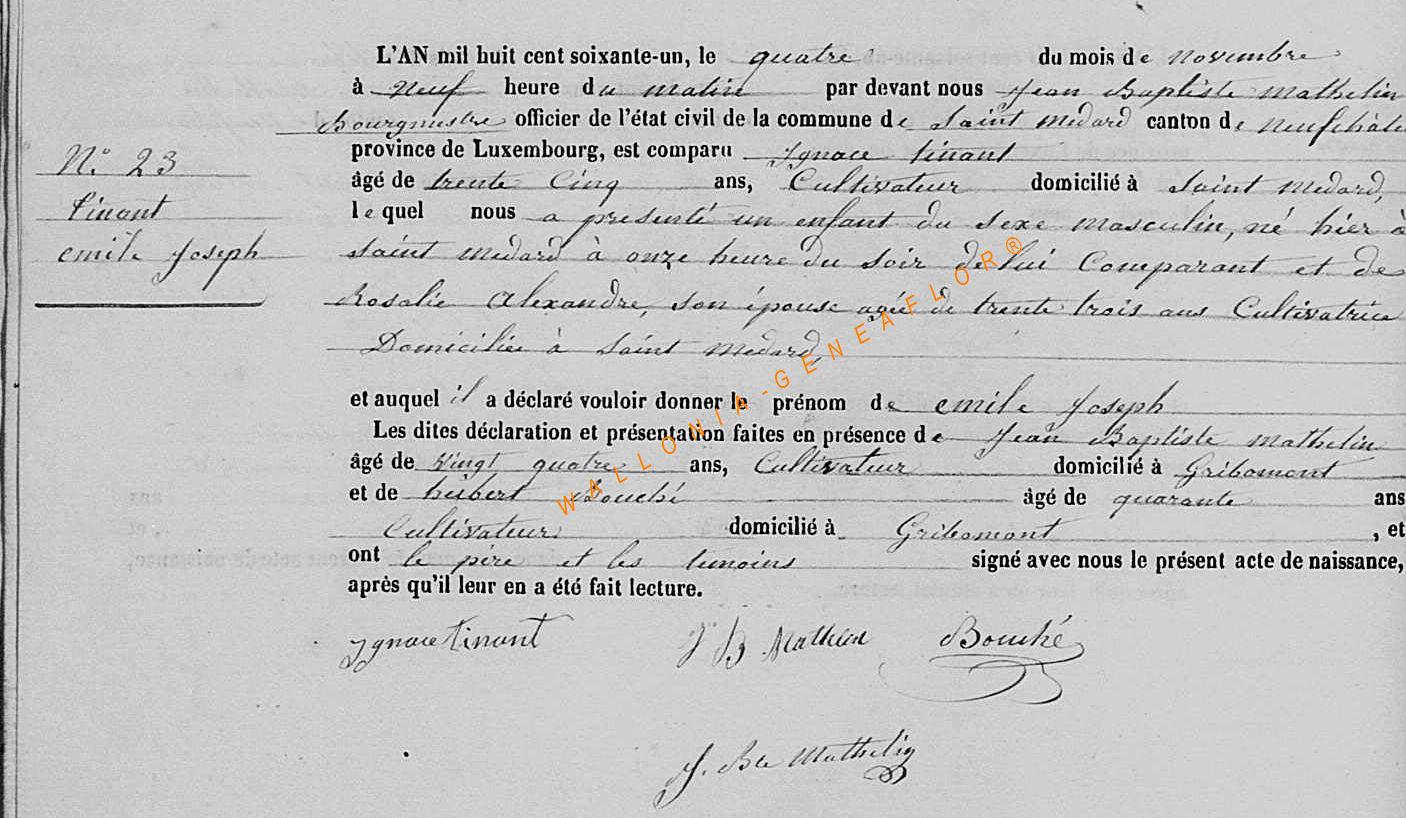 L'AN mil huit cent soixante-un, le quatre du mois de novembre
à neuf heure du matin par devant nous Jean Baptiste Mathelin
Bourgmestre officier de l'état civil de la commune de Saint Medard canton de neufchâte
province de Luxembourg, est comparu Ignace tinant
N.° 23
âgé de trente Cinq ans, Cultivateur domicilié à Saint Medard,
tinant
lequel nous a presenté un enfant du sexe masculin, né hier à
emile Joseph
Saint Medard à onze heure du soir de lui Comparant et de
Rosalie Alexandre, son épouse agée de trente trois ans Cultivatrice
Domiciliée à Saint Medard,
et auquel il a déclaré vouloir donner le prénom de emile Joseph
Les dites déclaration et présentation faites en présence de Jean Baptiste Mathelin
âgé de vingt quatre ans, Cultivateur domicilié à Gribomont
et de hubert Bouché âgé de quarante ans
Cultivateur domicilié à Gribomont , et
ont le père et les temoins signé avec nous le présent acte de naissance,
après qu'il leur en a été fait lecture.
Ignace tinant J B Mathelin Bouché
J. Bte Mathelin
WALLONIA-GENEAFLOR®